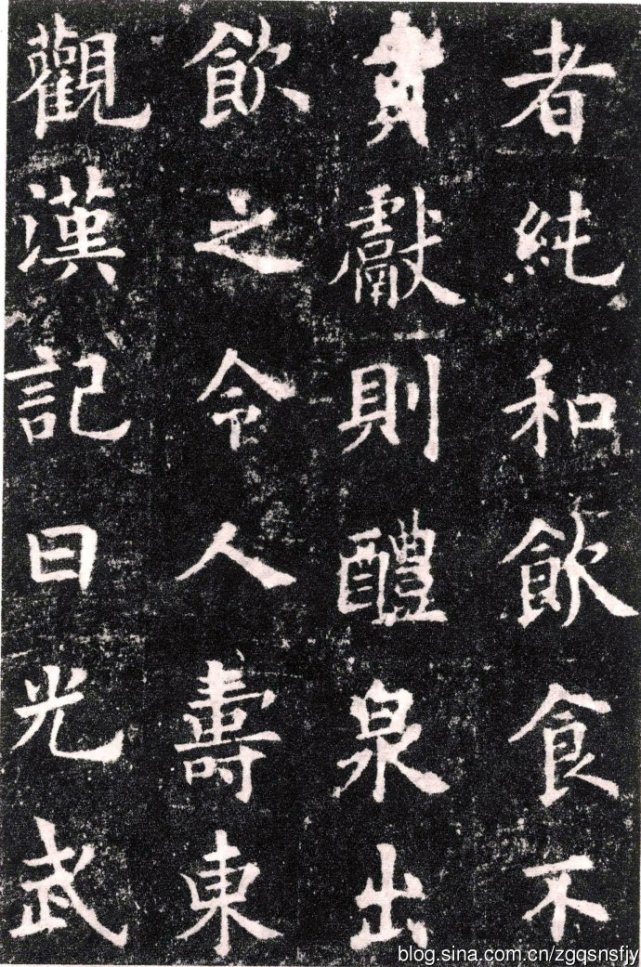 者純和飲食不
貢獻則醴泉出
飲之令人壽東
觀漢記曰光武
blog.sina.com.cn/zgqsnsfjy